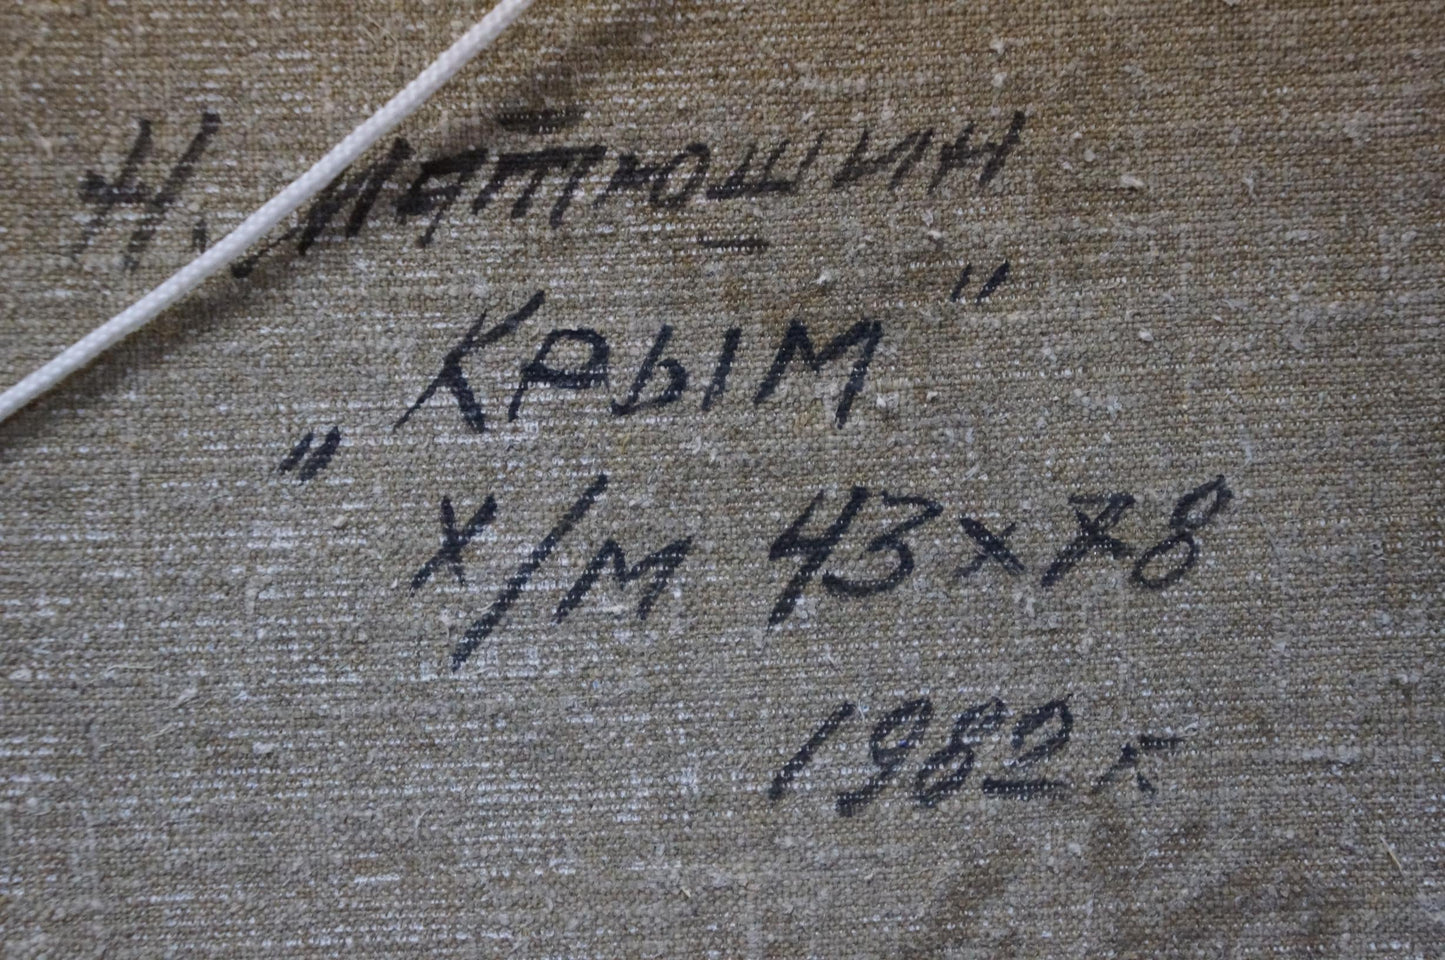 Н. Матюшин
„Крым"
х/м 43х78
1982 г.